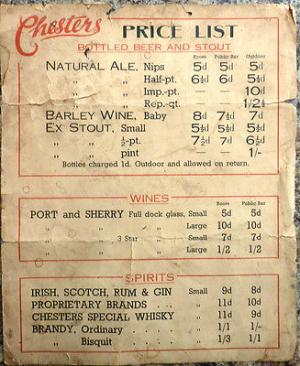 Chesters PRICE LIST
BOTTLED BEER AND STOUT
Room Public Bar Outdoor
NATURAL ALE, Nips 5d 5d 5d
„ „ Half-pt. 6½d 6d 5½d
„ „ Imp.-pt. — — 10d
„ „ Rep.-qt. — — 1/2½
BARLEY WINE, Baby 8d 7½d 7d
EX STOUT, Small 5½d 5½d 5½d
„ „ ½-pt. 7½d 7d 6½d
„ „ pint — — 1/-
Bottles charged 1d. Outdoor and allowed on return.
WINES
Room Public Bar
PORT and SHERRY Full dock glass, Small 5d 5d
„ „ „ Large 10d 10d
„ „ 3 Star „ Small 7d 7d
„ „ „ Large 1/2 1/2
SPIRITS
Room Public Bar
IRISH, SCOTCH, RUM & GIN Small 9d 8d
PROPRIETARY BRANDS . . „ 11d 10d
CHESTERS SPECIAL WHISKY „ 11d 10d
BRANDY, Ordinary . . . . „ 1/1 1/-
„ Bisquit . . . . „ 1/3 1/1